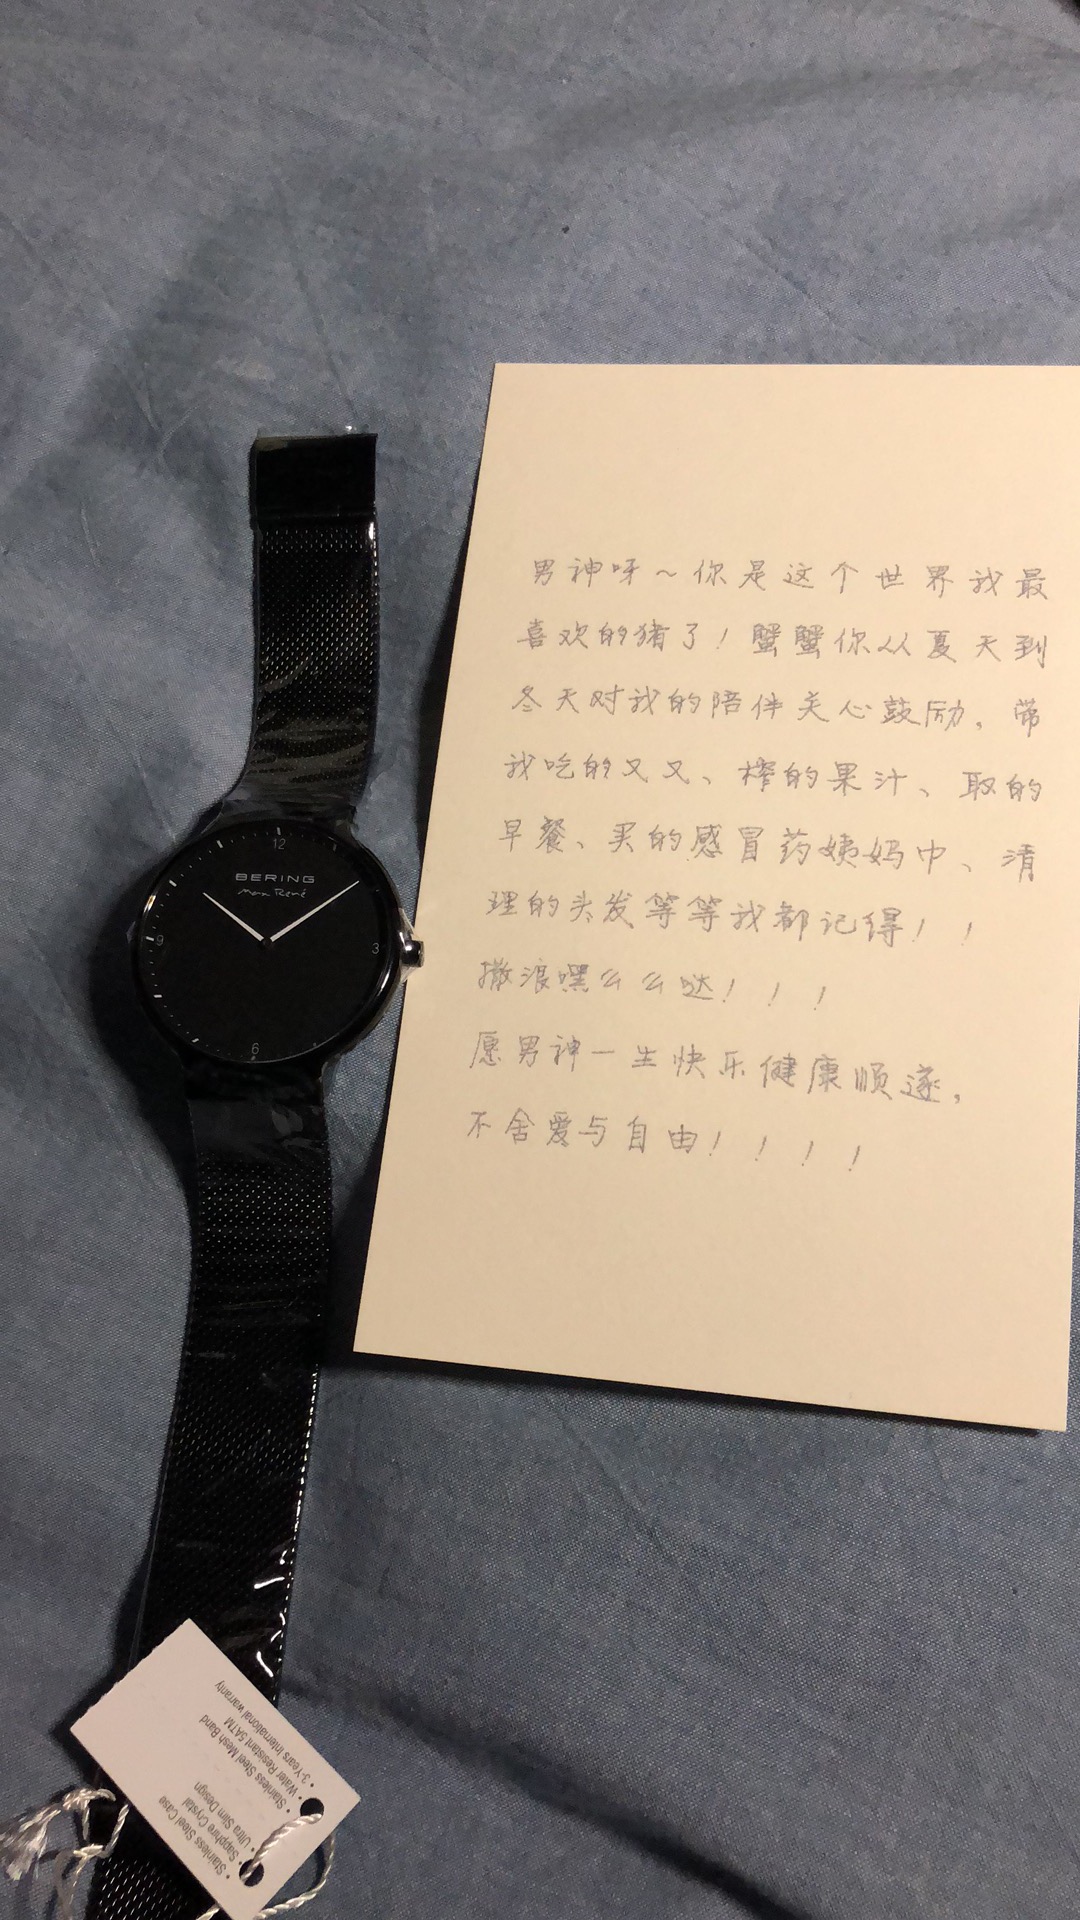 12
BERING
Max René
9
3
6
男神呀～你是这个世界我最
喜欢的猪了！蟹蟹你从夏天到
冬天对我的陪伴关心鼓励。带
我吃的叉叉、榨的果汁、取的
早餐、买的感冒药姨妈巾、清
理的头发等等我都记得！！
撒浪嘿么么哒！！！
愿男神一生快乐健康顺遂，
不舍爱与自由！！！！
• Stainless Steel Case
• Sapphire Crystal
• Ultra Slim Design
• Stainless Steel Mesh Band
• Water Resistant 5ATM
• 3-Years International warranty